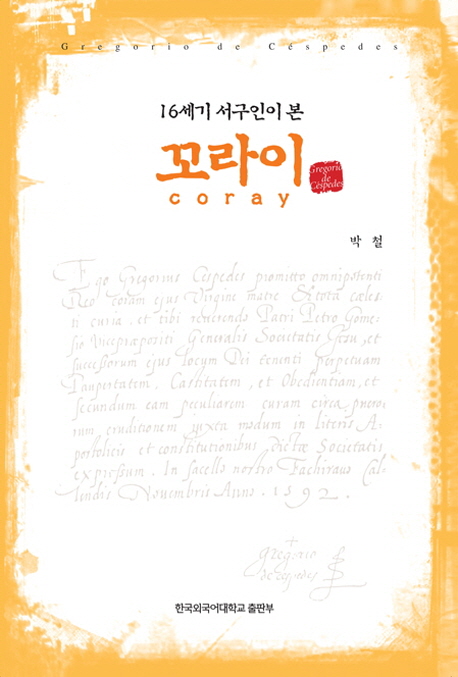 Gregorio de Céspedes
16세기 서구인이 본
꼬라이
coray
Gregorio
de
Céspedes
박 철
Ego Gregorius Cespedes promitto omnipotenti
Deo coram ejus Virgine matre & tota cæles-
ti curia, et tibi reverendo Patri Petro Gome-
sio Vicepræposito Generalis Societatis Gesu, et
successorum ejus locum Dei tenenti perpetuam
Paupertatem, Castitatem, et Obedientiam, et
secundum eam peculiarem curam circa puero-
rum eruditionem juxta modum in literis A-
postolicis et constitutionibus dictæ Societatis
expressum. In sacello nostro Fachirauo Cal-
lendis Novembris Anno. 1592.
Gregorio
de cespedes
한국외국어대학교 출판부